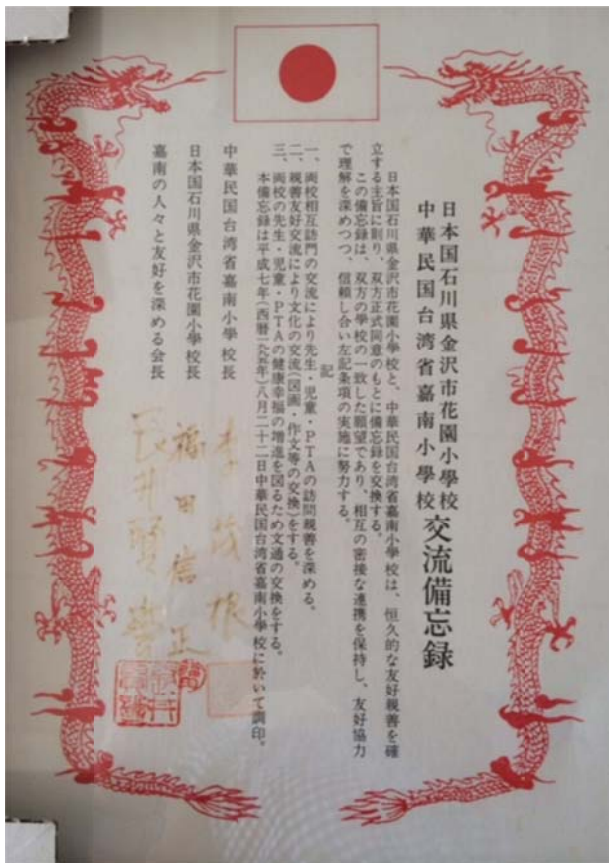 日本国石川県金沢市花園小學校
中華民国台湾省嘉南小學校
交流備忘録
日本国石川県金沢市花園小學校と、中華民国台湾省嘉南小學校は、恒久的な友好親善を確
立する主旨に則り、双方正式同意のもとに備忘録を交換する。
この備忘録は、双方の學校の一致した願望であり、相互の密接な連携を保持し、友好協力
で理解を深めつつ、信頼し合い左記条項の実施に努力する。
記
一、両校相互訪門の交流により先生・児童・PTAの訪問親善を深める。
二、親善友好交流により文化の交流(図画・作文等の交換)をする。
三、両校の先生・児童・PTAの健康幸福の増進を図るため文通の交換をする。
本備忘録は平成七年(西暦一九九五年)八月二十二日中華民国台湾省嘉南小學校に於いて調印。
中華民国台湾省嘉南小學校長
日本国石川県金沢市花園小學校長
福田信正
嘉南の人々と友好を深める会長